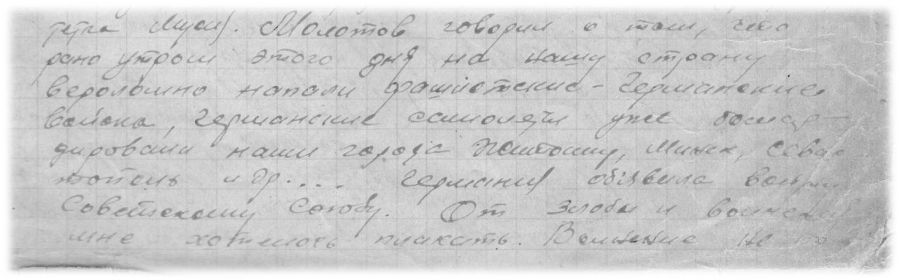 тётка Мусия. Молотов говорил о том, что
рано утром этого дня на нашу страну
вероломно напали фашистские - Германские
войска, Германские самолёты уже бомбар-
дировали наши города Минск, Сева-
стополь и др.... Германия объявила войну
Советскому Союзу. От злобы и волнения
мне хотелось плакать. Волнение не